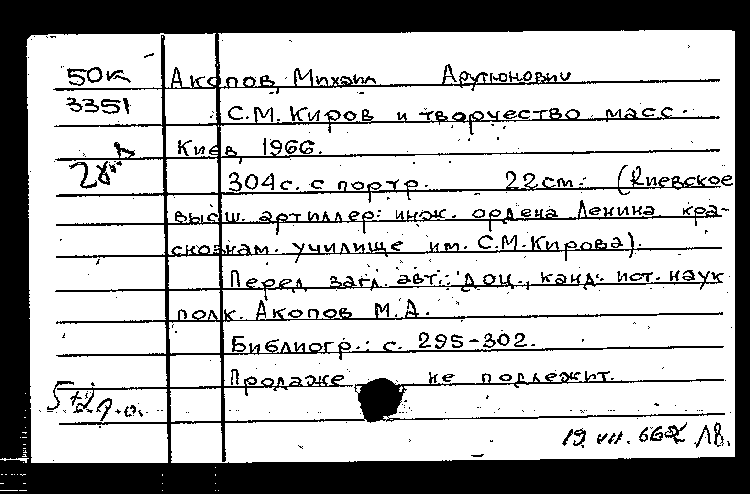 50к Акопов, Михаил Арутюнович
3351 С.М. Киров и творчество масс.
Киев, 1966.
304с. с портр. 22см. (Киевское
высш. артиллер. инж. ордена Ленина кра-
снознам. училище им. С.М. Кирова).
Перед загл. авт.: доц., канд. ист. наук
полк. Акопов М.А.
Библиогр.: с. 295-302.
Продаже не подлежит.
19.VII.66г